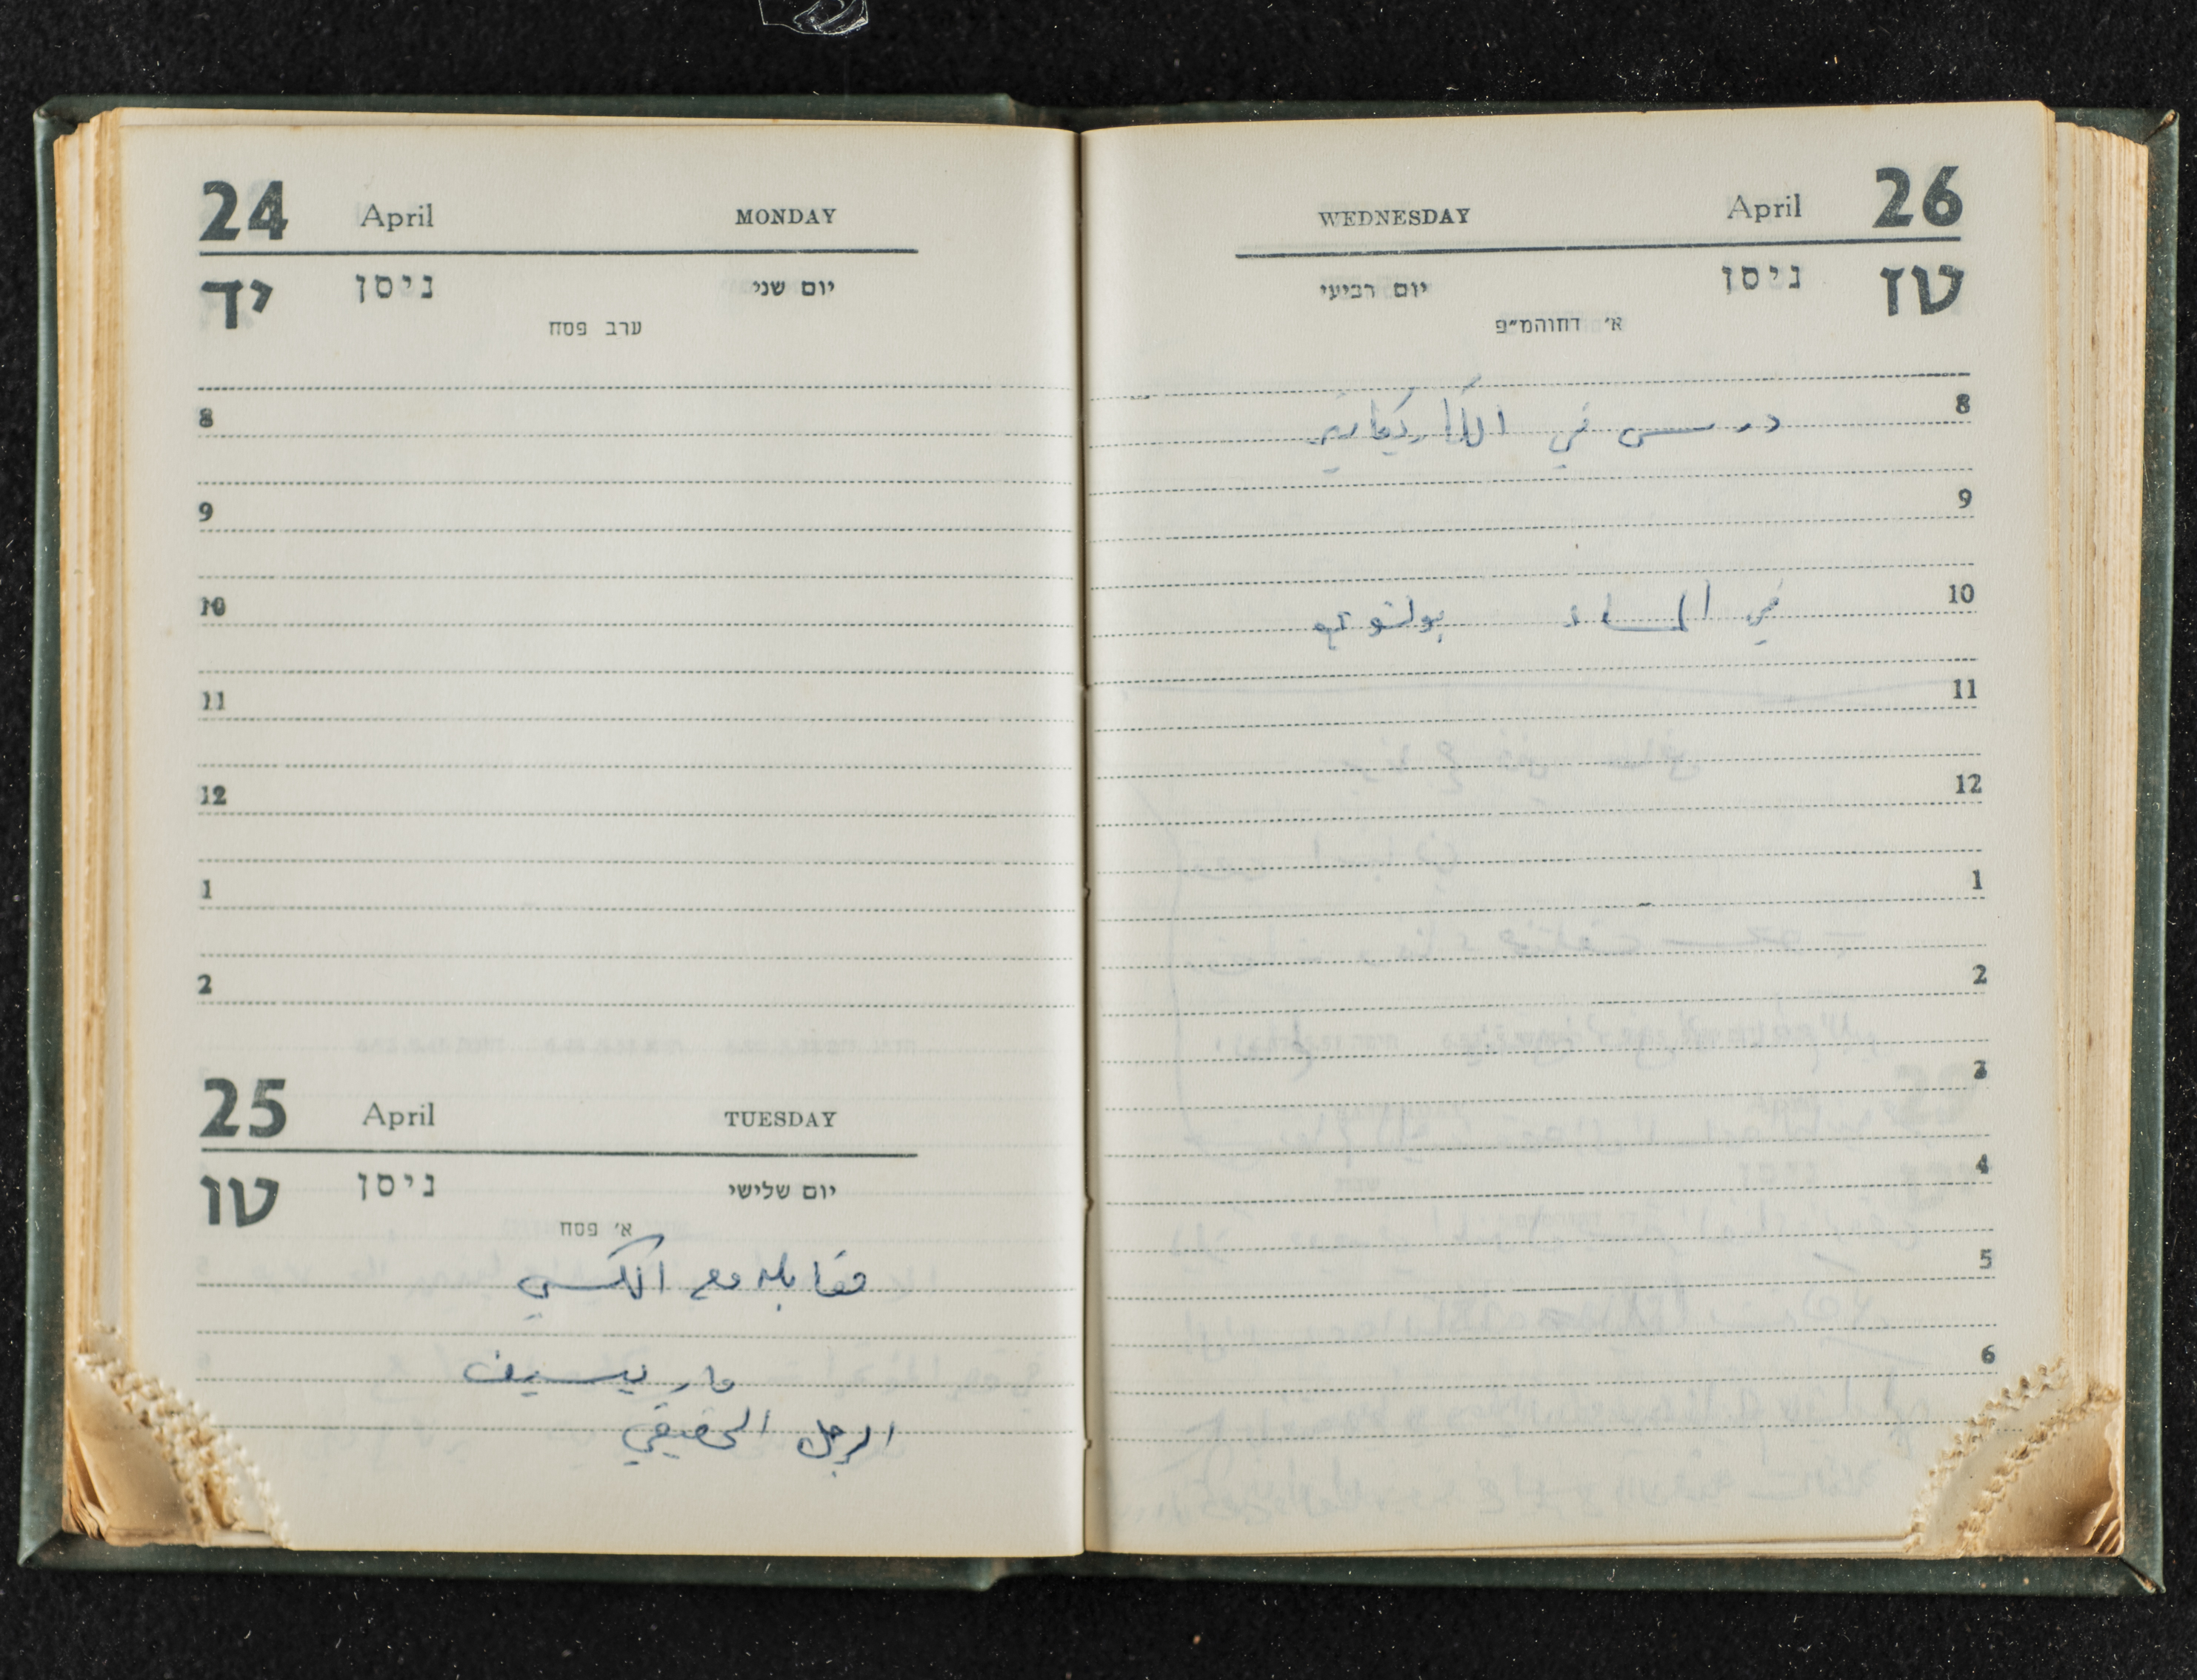 24 April MONDAY
יד ניסן יום שני
ערב פסח
8
9
10
11
12
1
2
25 April TUESDAY
טו ניסן יום שלישי
א׳ פסח
مقابله مع الكسي
الرجل الحقيقي
WEDNESDAY April 26
טז ניסן יום רביעי
א׳ דחוהמ״פ
8 درس في الكاريكاتير
9
10 في المساء
11
12
1
2
3
4
5
6